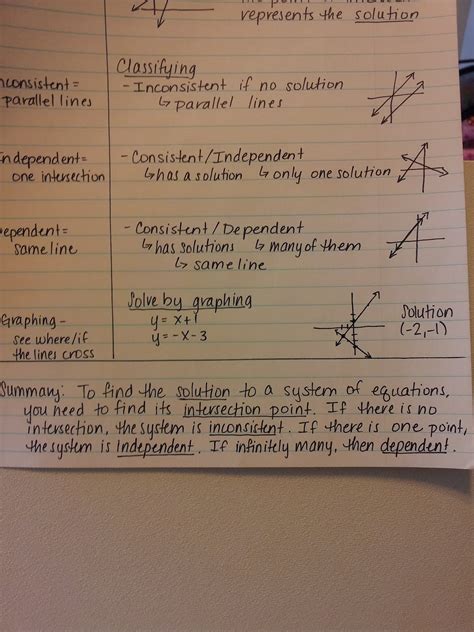 represents the solution
Classifying
nconsistent =
parallel lines
- Inconsistent if no solution
↳ parallel lines
ndependent=
one intersection
- Consistent/Independent
↳ has a solution ↳ only one solution
ependent=
same line
- Consistent / Dependent
↳ has solutions ↳ many of them
↳ same line
Graphing -
see where/if
the lines cross
Solve by graphing
y = x+1
y = -x-3
Solution
(-2,-1)
Summary: To find the solution to a system of equations,
you need to find its intersection point. If there is no
intersection, the system is inconsistent. If there is one point,
the system is independent. If infinitely many, then dependent.